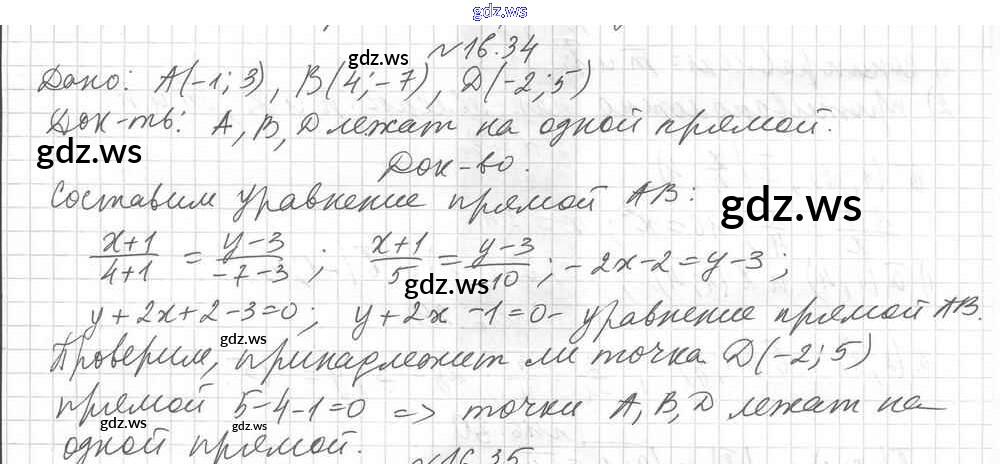 gdz.ws
№16.34
gdz.ws
Дано: A(-1; 3), B(4; -7), D(-2; 5)
Док-ть: A, B, D лежат на одной прямой.
gdz.ws
Док-во.
Составим уравнение прямой AB:
gdz.ws
x+1/4+1 = y-3/-7-3 ; x+1/5 = y-3/-10 ; -2x-2=y-3 ;
gdz.ws
y+2x+2-3=0; y+2x-1=0 - уравнение прямой AB.
gdz.ws
Проверим, принадлежит ли точка D(-2; 5)
прямой 5-4-1=0 => точки A, B, D лежат на
gdz.ws gdz.ws gdz.ws
одной прямой.
№16.35